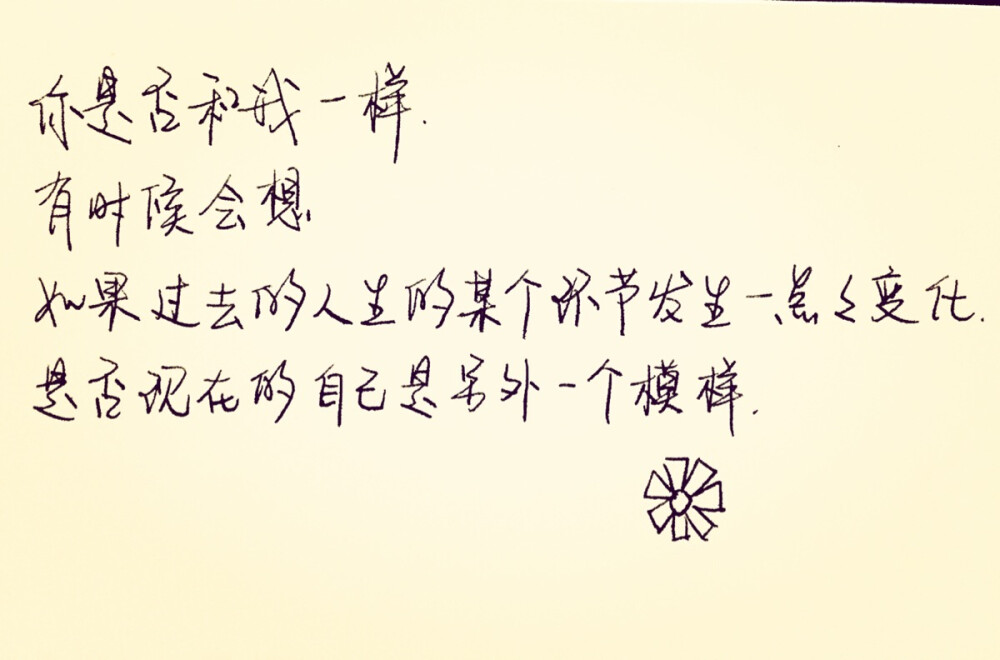 你是否和我一样.
有时候会想.
如果过去的人生的某个环节发生一点々变化.
是否现在的自己是另外一个模样.